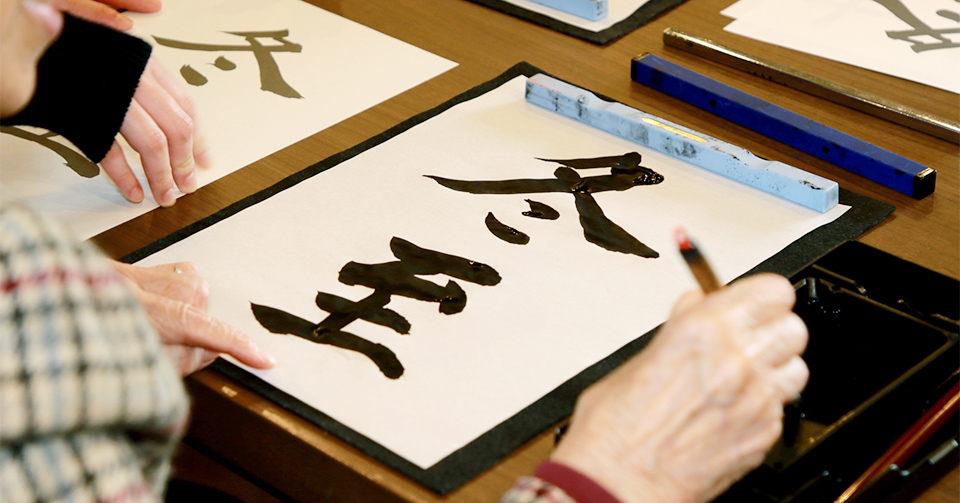 冬至
冬